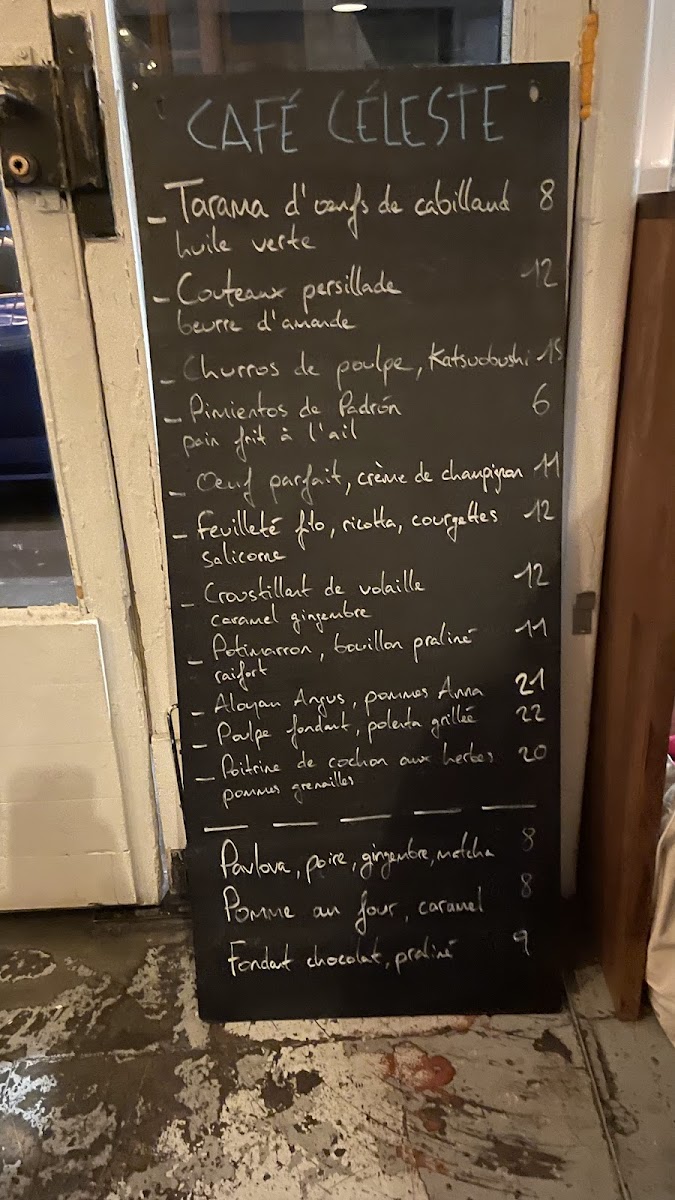 CAFÉ CÉLESTE
- Tarama d'œufs de cabillaud 8
huile verte
- Couteaux persillade 12
beurre d'amande
- Churros de poulpe, Katsuobushi 15
- Pimientos de Padrón 6
pain frit à l'ail
- Œuf parfait, crème de champignon 11
- Feuilleté filo, ricotta, courgettes 12
salicorne
- Croustillant de volaille 12
caramel gingembre
- Potimarron, bouillon praliné 11
raifort
- Aloyau Angus, pommes Anna 21
- Poulpe fondant, polenta grillée 22
- Poitrine de cochon aux herbes 20
pommes grenailles
Pavlova, poire, gingembre, matcha 8
Pomme au four, caramel 8
Fondant chocolat, praliné 9